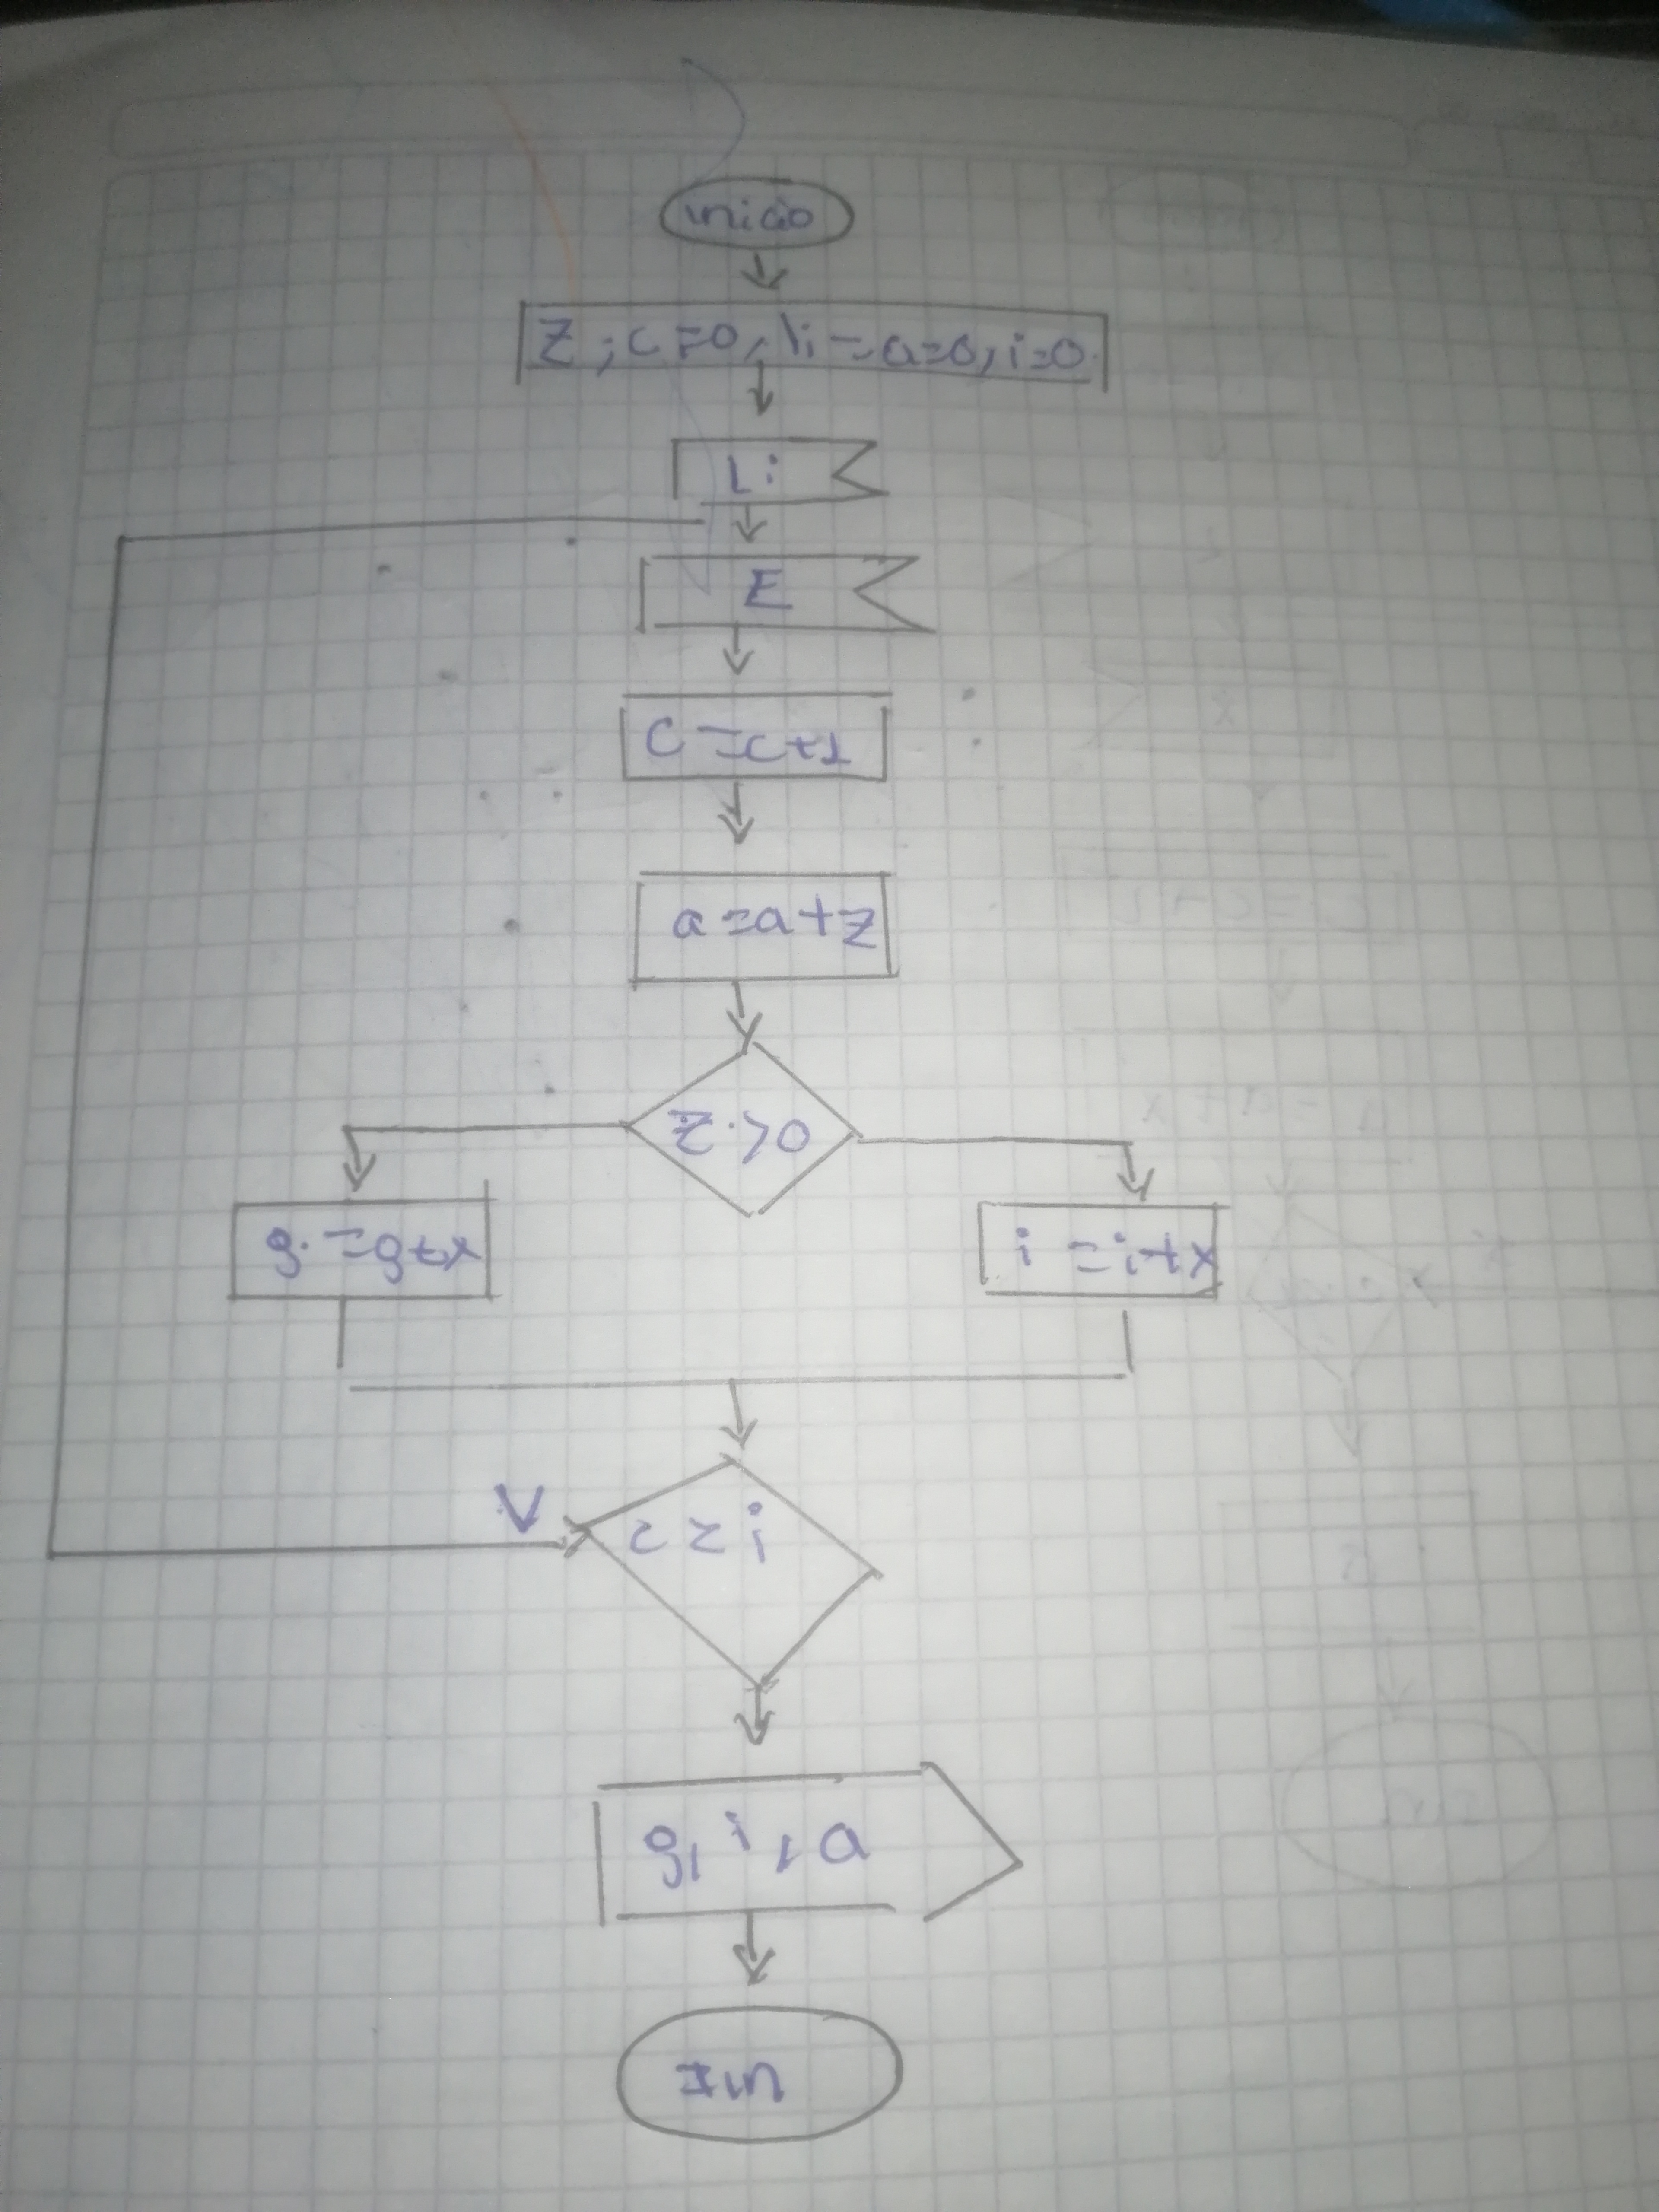 inicio
Z ; c=0, li=, a=0, i=0.
Li
E
C=c+1
a=a+z
Z.>0
g.=g+x
i=i+x
V
c z i
g, i, a
Fin